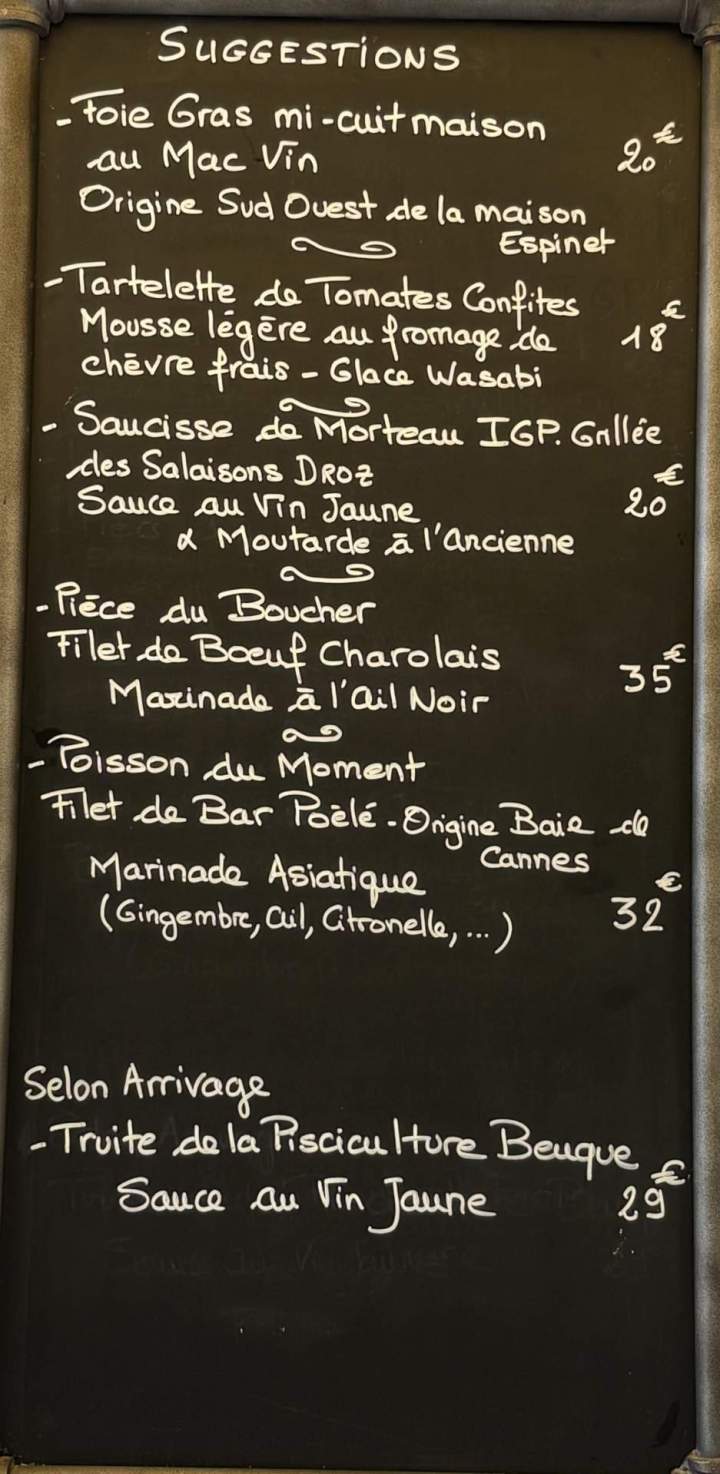 SUGGESTIONS
- Foie Gras mi-cuit maison
au Mac Vin 20€
Origine Sud Ouest de la maison
Espinet
- Tartelette de Tomates Confites
Mousse légère au fromage de 18€
chèvre frais - Glace Wasabi
- Saucisse de Morteau IGP. Grillée
des Salaisons DROZ
Sauce au Vin Jaune 20€
& Moutarde à l'Ancienne
- Pièce du Boucher
Filet de Boeuf Charolais 35€
Marinade à l'ail Noir
- Poisson du Moment
Filet de Bar Poêlé - Origine Baie de
Cannes
Marinade Asiatique
(Gingembre, ail, Citronelle, ...) 32€
Selon Arrivage
- Truite de la Pisciculture Beuque
Sauce au Vin Jaune 29€